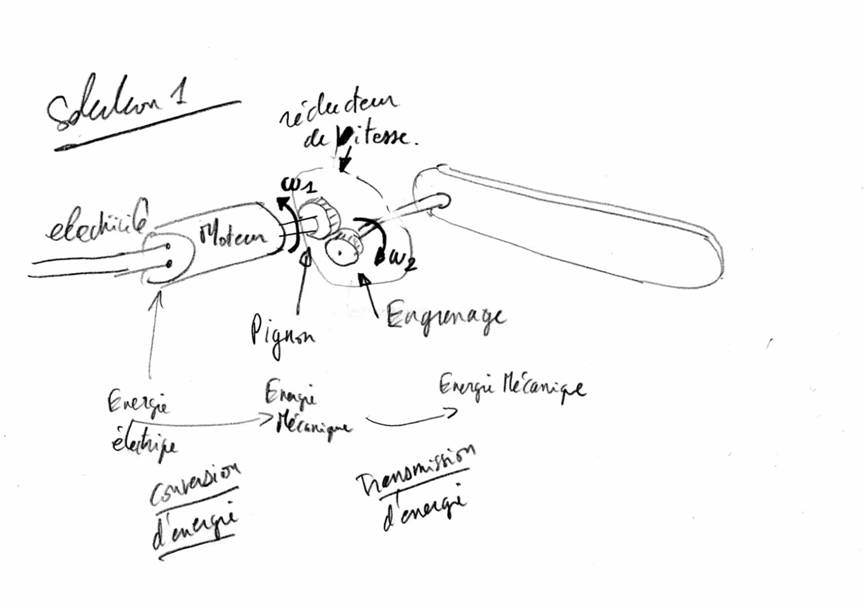 Solution 1
réducteur
de vitesse.
ω1
electricité
Moteur
ω2
Pignon
Engrenage
Energie
électrique
Energie
Mécanique
Energie Mécanique
Conversion
d'energie
Transmission
d'energie